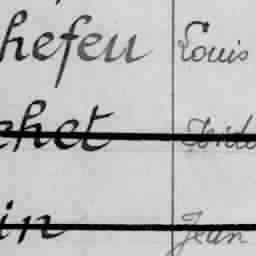 hefeu Louis
chet
in Jean